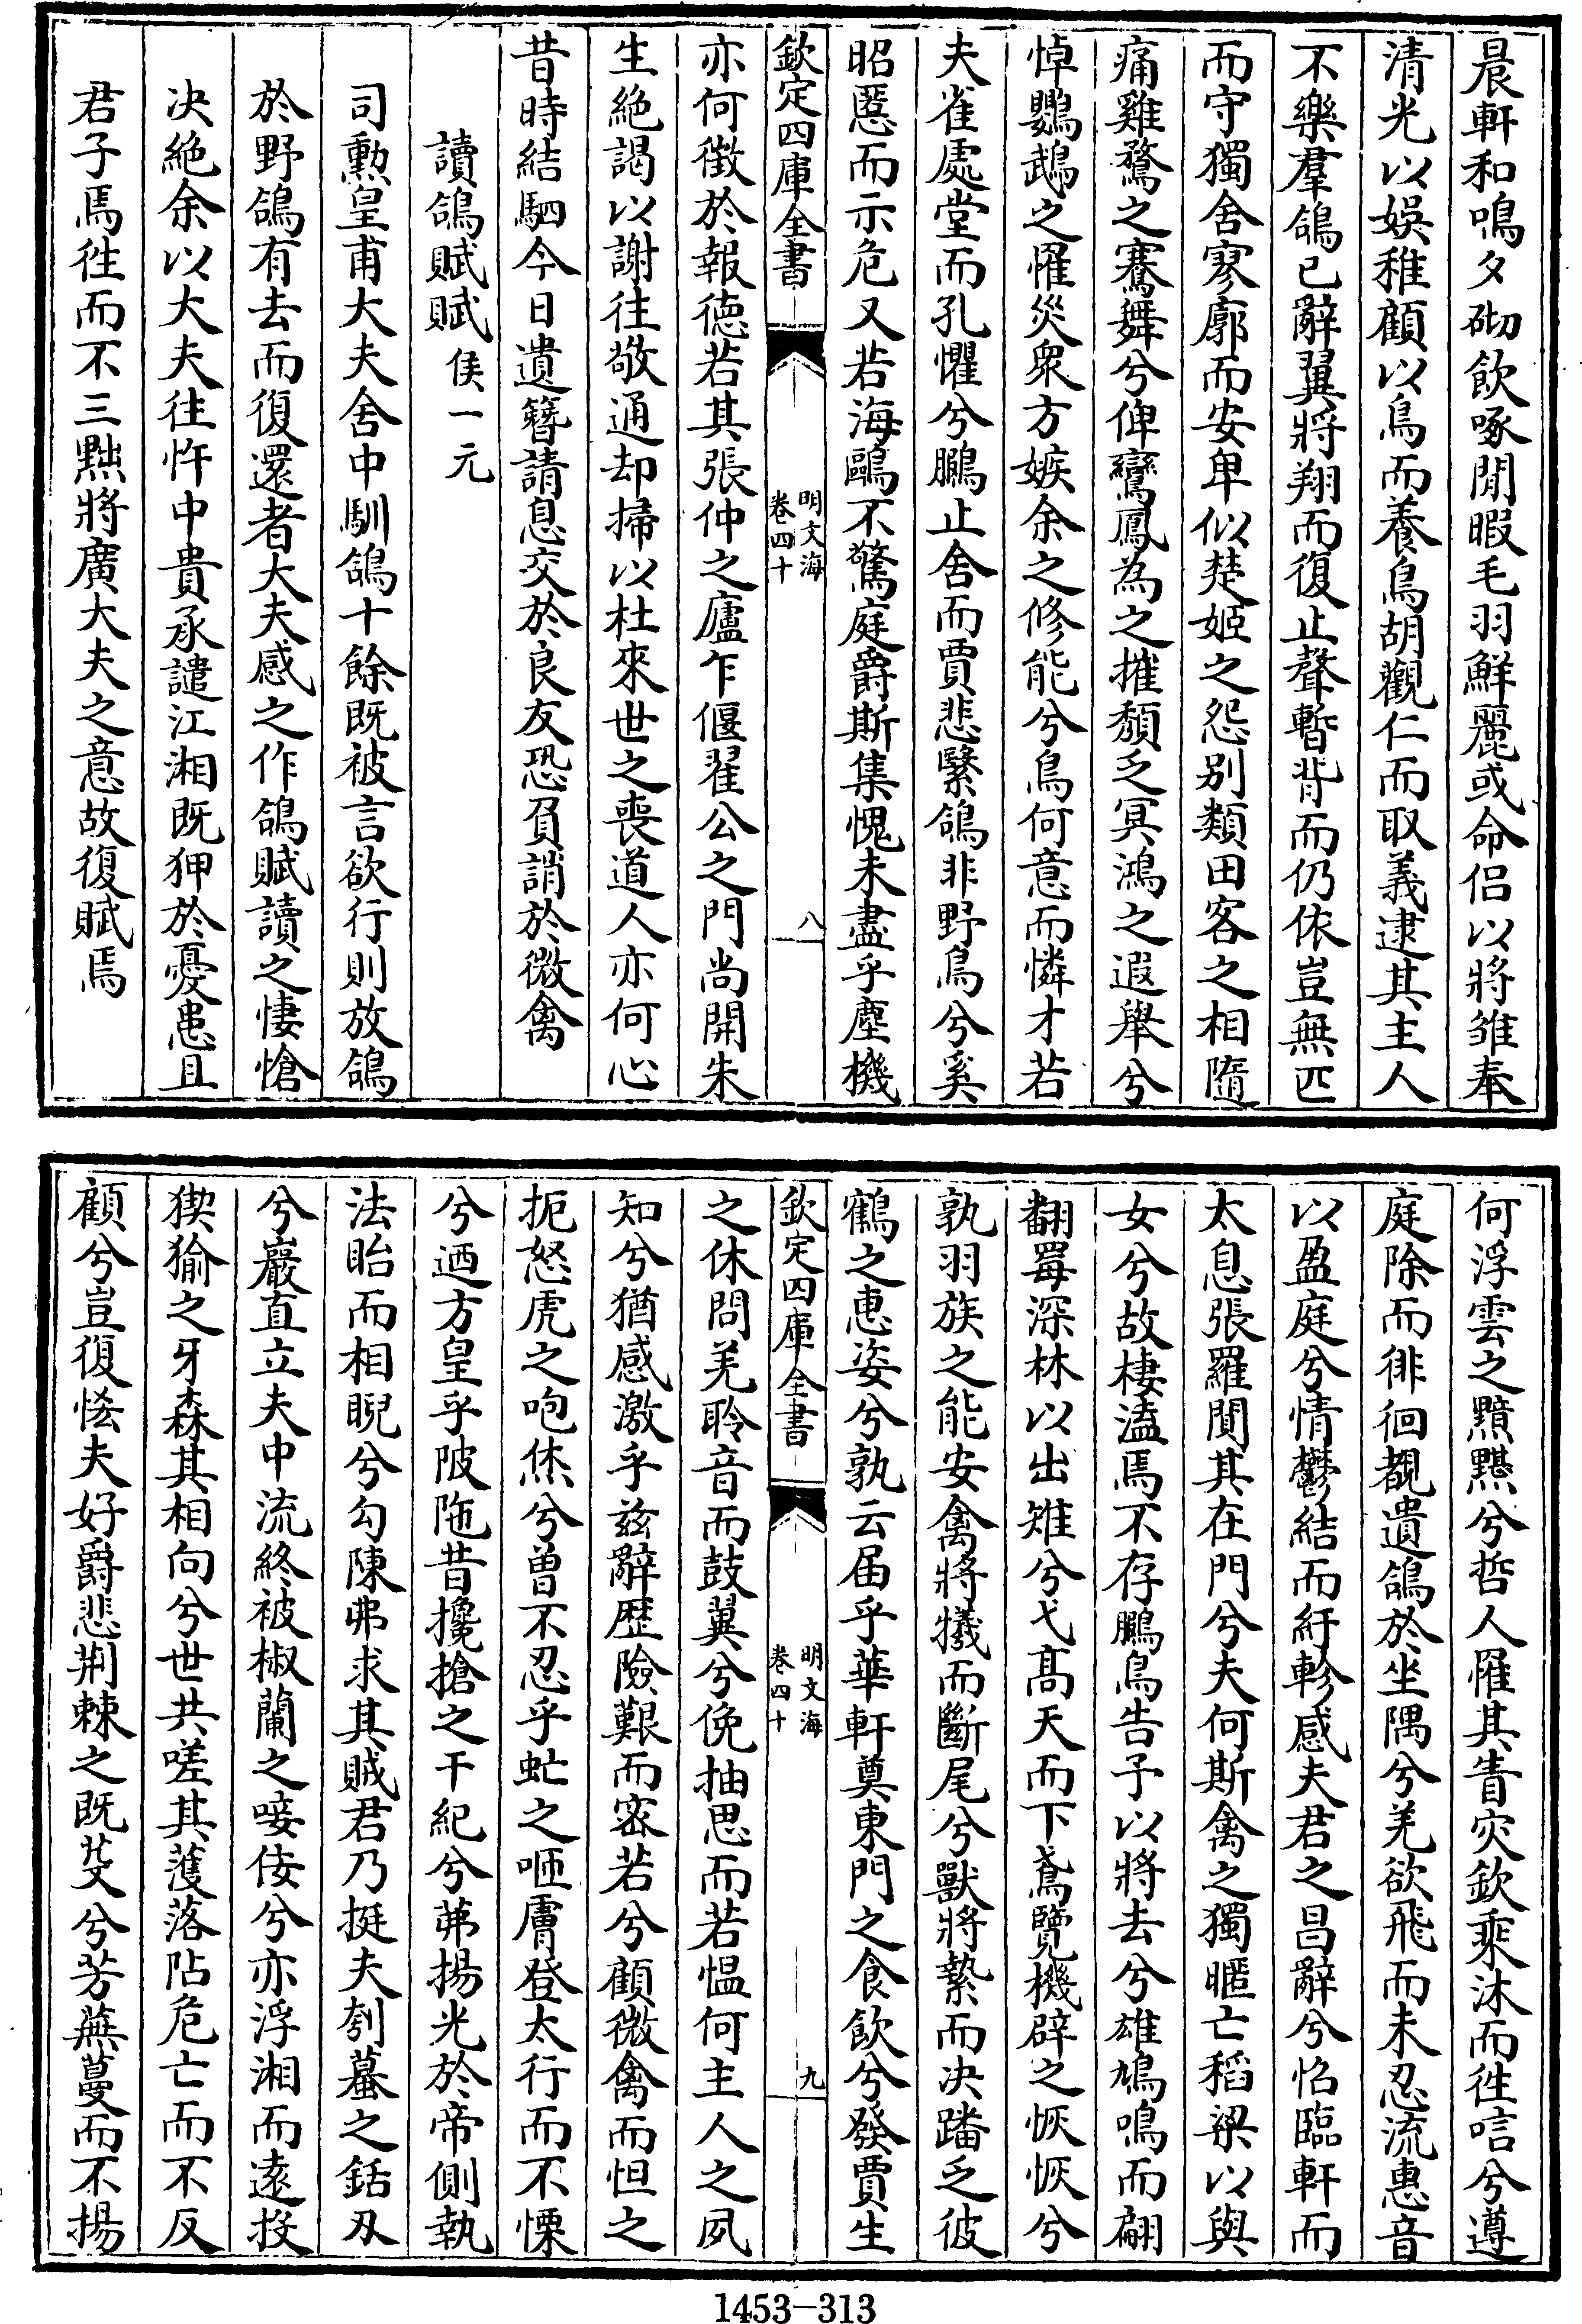 晨軒和鳴夕砌飲啄閒暇毛羽鮮麗或命侣以將雏奉
清光以娱稚顧以鳥而養鳥胡觀仁而取義逮其主人
不樂羣鴿已辭翼將翔而復止聲暫背而仍依豈無匹
而守獨舍寥廓而安卑似楚姬之怨别類田客之相隨
痛雞鶩之騫舞兮俾鸞鳳為之摧頽乏冥鴻之遐舉兮
悼鸚鵡之罹災衆方嫉余之修能兮鳥何意而憐才若
夫雀處堂而孔懼兮鵬止舍而賈悲繄鴿非野鳥兮奚
昭慝而示危又若海鷗不驚庭爵斯集愧未盡乎塵機
欽定四庫全書
明文海
卷四十
八
亦何徴於報徳若其張仲之廬乍偃翟公之門尚開朱
生絶謁以謝往敬通却掃以杜來世之喪道人亦何心
昔時結駟今日遺簪請息交於良友恐負誚於微禽
讀鴿賦賦 侯一元
司勲皇甫大夫舍中馴鴿十餘既被言欲行則放鴿
於野鴿有去而復還者大夫感之作鴿賦讀之悽愴
决絶余以大夫往忤中貴承譴江湘既狎於憂患且
君子焉徃而不三黜將廣大夫之意故復賦焉
何浮雲之黯黮兮哲人罹其眚灾欽乘沐而徃唁兮遵
庭除而徘徊覩遺鴿於坐隅兮羌欲飛而未忍流惠音
以盈庭兮情鬱結而紆軫感夫君之昌辭兮怊臨軒而
太息張羅閴其在門兮夫何斯禽之獨暱亡稻粱以與
女兮故棲溘焉不存鵬鳥告予以將去兮雄鳩鳴而翩
翻罦深林以出雉兮弋髙天而下鳶覽機辟之恢恢兮
孰羽族之能安禽將犧而斷尾兮獸將縶而决踏乏彼
鶴之恵姿兮孰云届乎華軒奠東門之食飲兮發賈生
之休問羌聆音而鼓翼兮俛抽思而若愠何主人之夙
知兮猶感激乎兹辭歴險艱而宻若兮顧微禽而怛之
扼怒虎之咆烋兮曽不忍乎虻之咂膚登太行而不慄
兮迺方皇乎陂陁昔攙搶之干紀兮茀揚光於帝側執
法眙而相睨兮勾陳弗求其賊君乃挺夫刳蟇之銛刃
兮巖直立夫中流終被椒蘭之唼佞兮亦浮湘而逺投
猰㺄之牙森其相向兮世共嗟其濩落阽危亡而不反
顧兮豈復恡夫好爵悲荆棘之既芟兮芳蕪蔓而不揚
1453-313